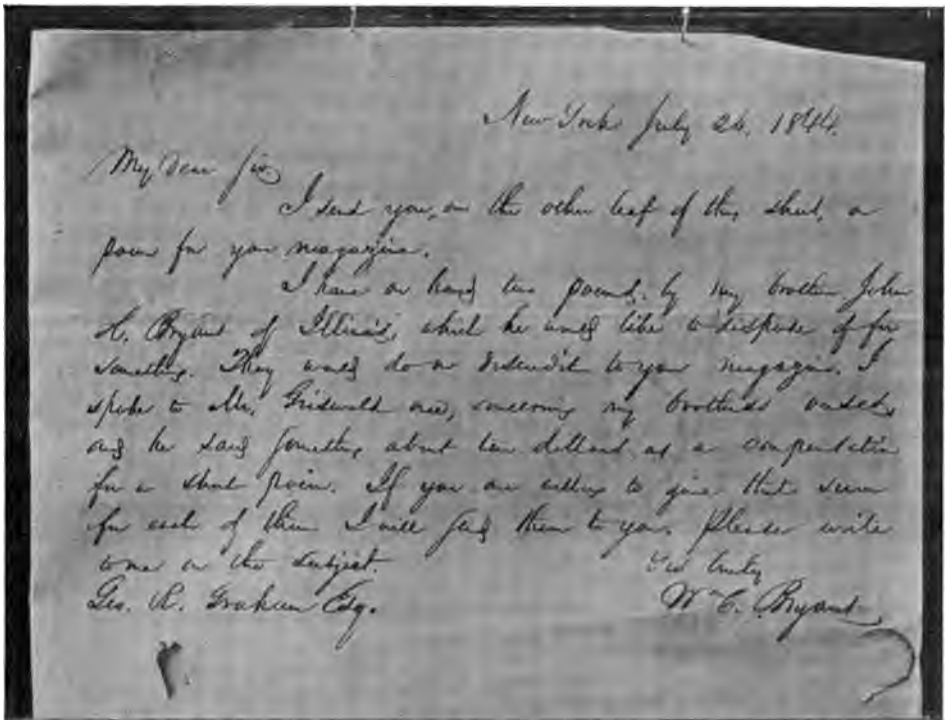 New York July 26, 1844.
My Dear Sir
I send you, on the other leaf of this sheet, a
poem for your magazine.
I have on hand two poems, by my brother John
H. Bryant of Illinois, which he would like to dispose of for
something. They would do no discredit to your magazine. I
spoke to Mr. Griswold once, concerning my brother's verses,
and he said something about ten dollars as a compensation
for a short poem. If you are willing to give that sum
for each of them I will send them to you. Please write
to me on the subject.
Yrs truly
Geo. R. Graham Esq.
Wm C. Bryant